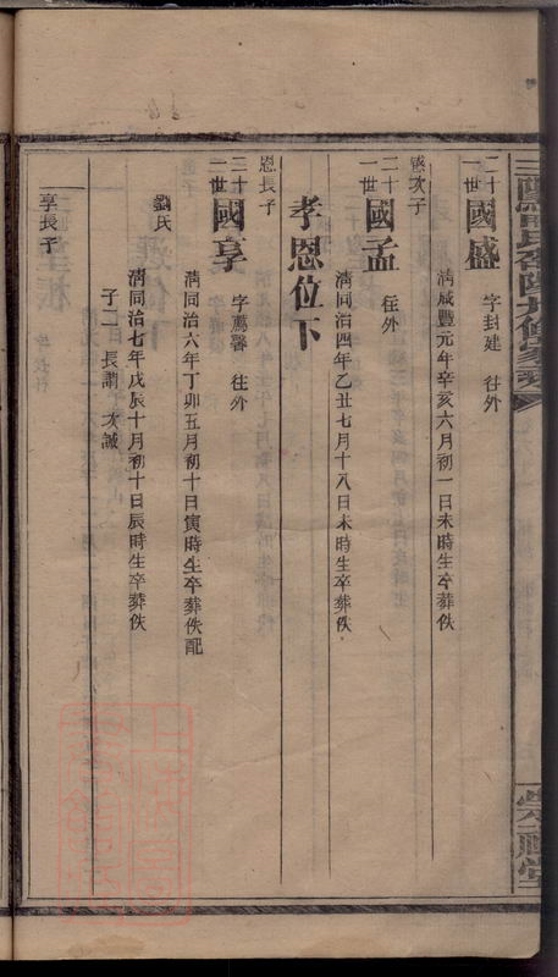 二十一世 國盛 字封建 往外
清咸豐元年辛亥六月初一日未時生卒葬佚
盛次子
二十一世 國孟 往外
清同治四年乙丑七月十八日未時生卒葬佚
孝恩位下
恩長子
二十一世 國享 字薦馨 往外
清同治六年丁卯五月初十日寅時生卒葬佚配
劉氏
清同治七年戊辰十月初十日辰時生卒葬佚
子二 長謂 次誠
享長子